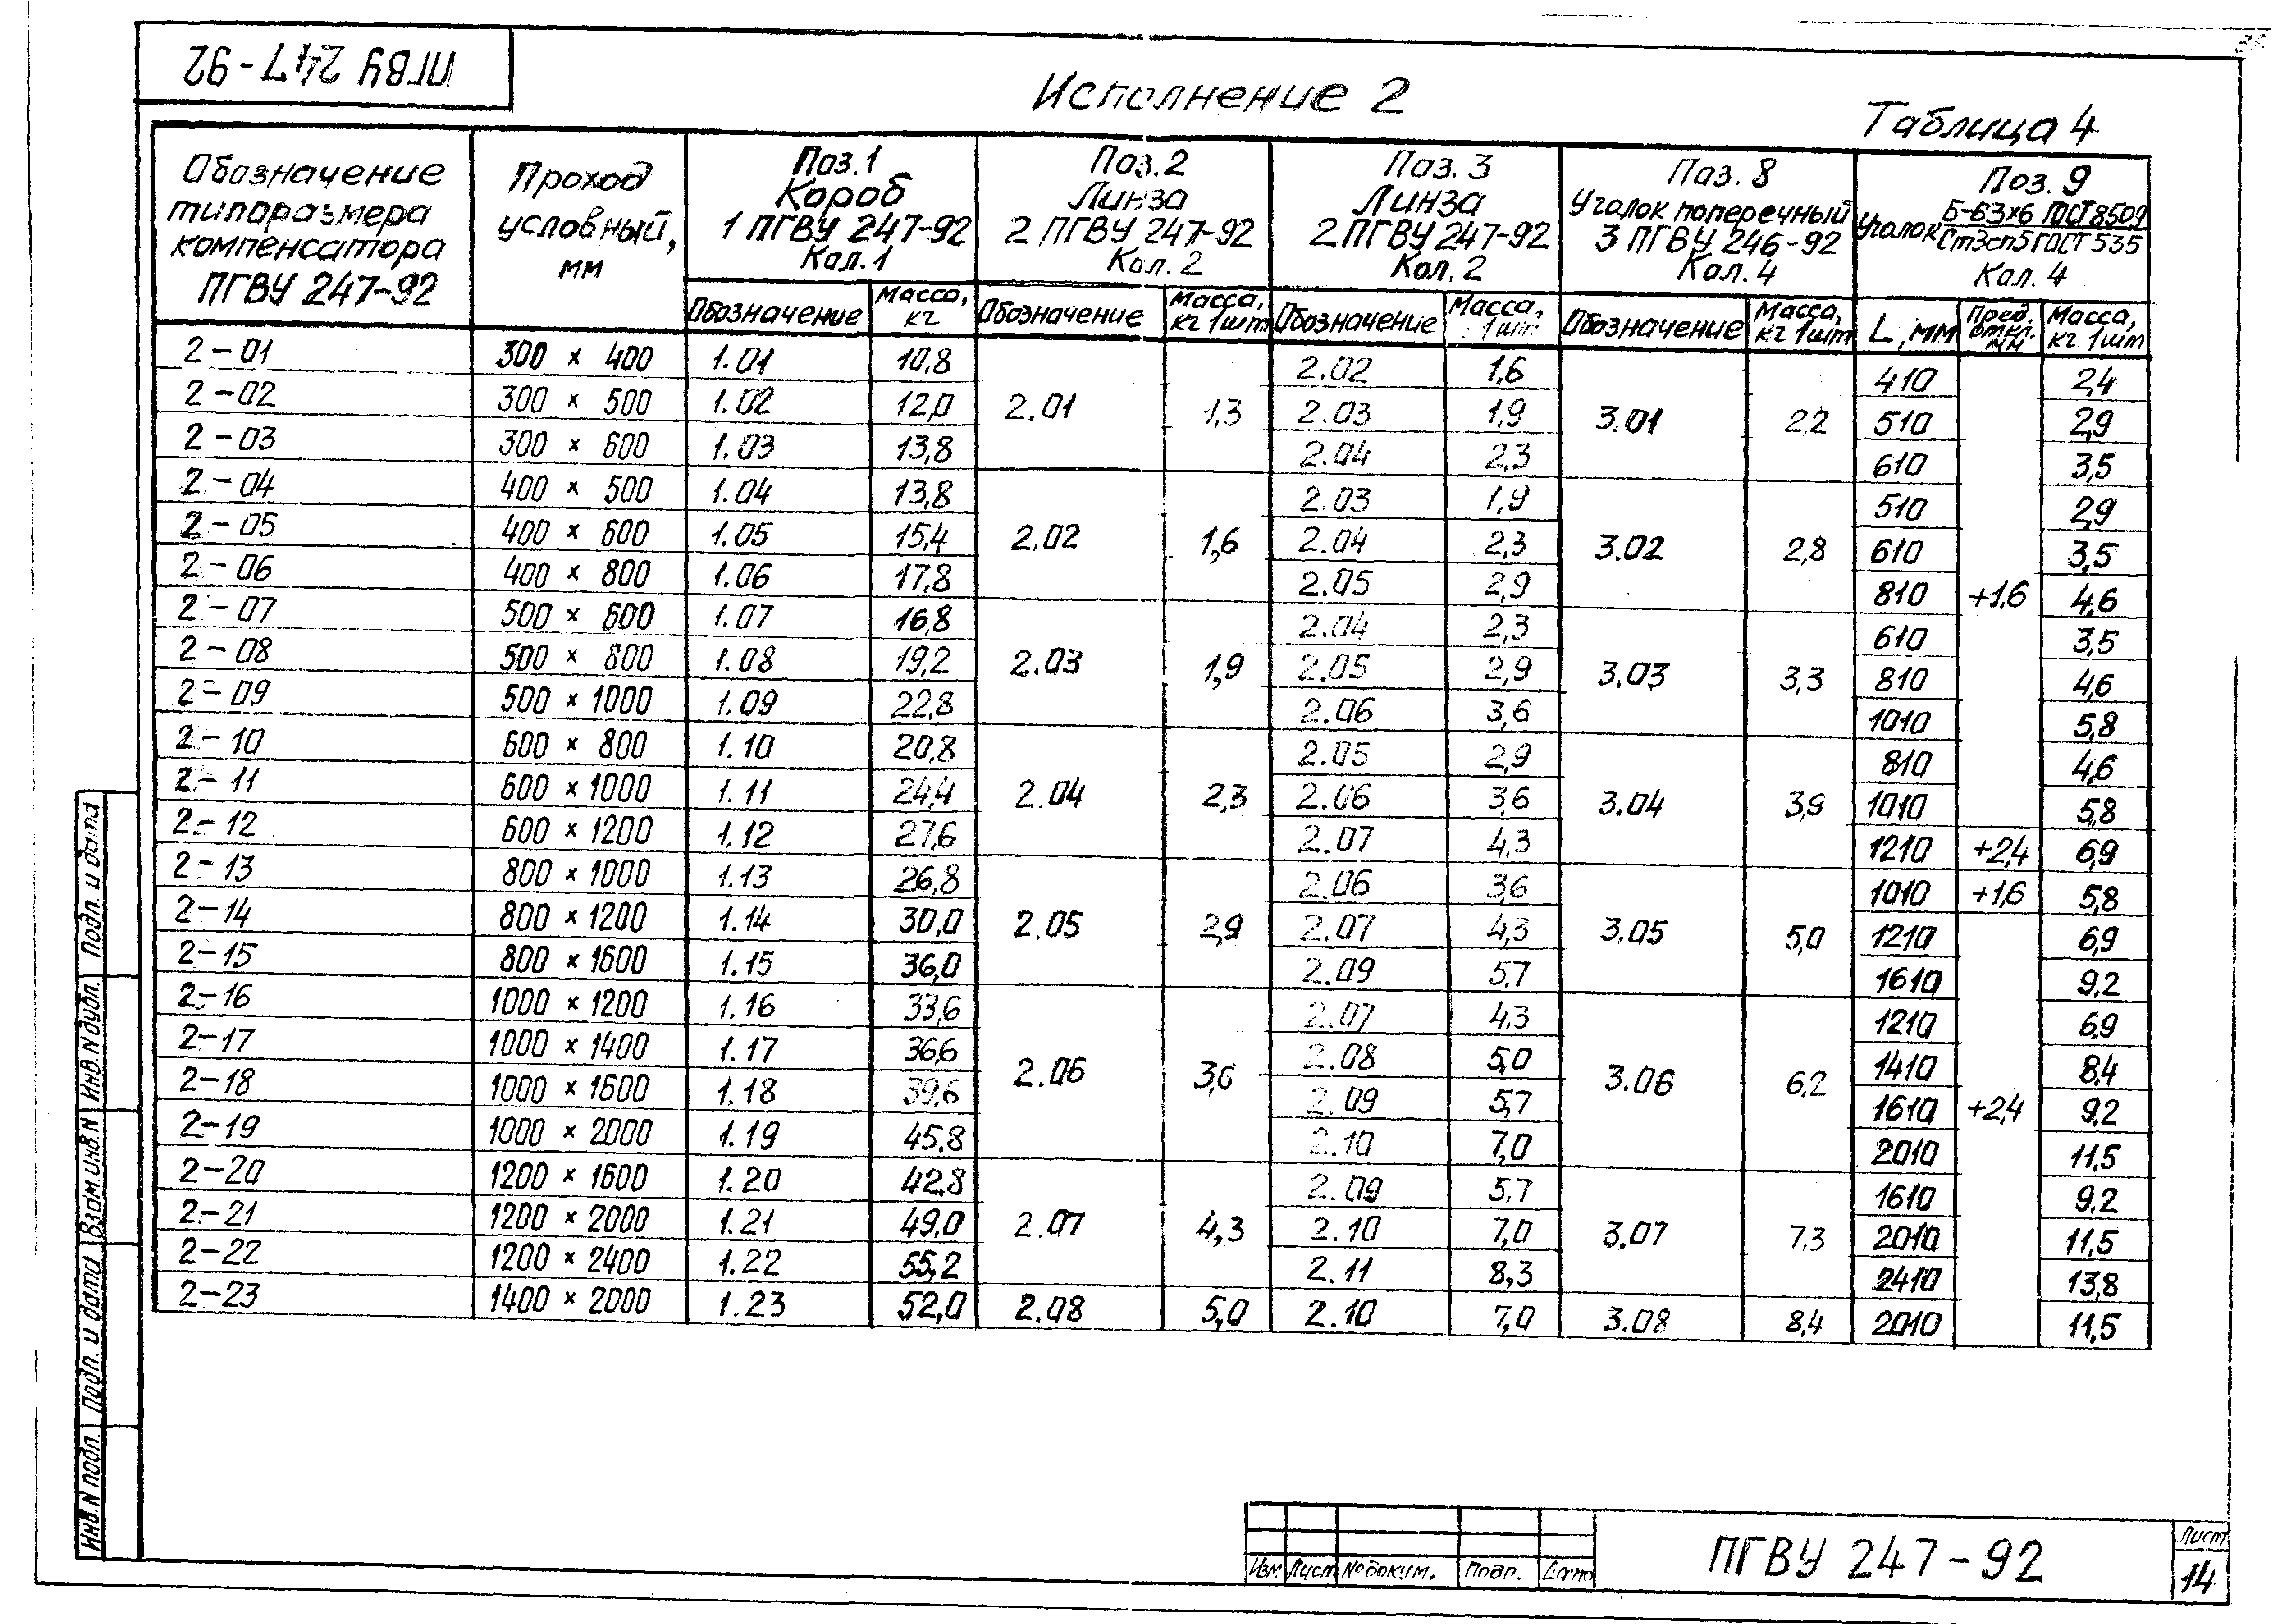 ПГВУ 247-92
Исполнение 2
Таблица 4
Обозначение типоразмера компенсатора ПГВУ 247-92
Проход условный, мм
Поз.1 Короб 1 ПГВУ 247-92 Кол.1
Поз.2 Линза 2 ПГВУ 247-92 Кол.2
Поз.3 Линза 2 ПГВУ 247-92 Кол.2
Поз.8 Уголок поперечный 3 ПГВУ 246-92 Кол.4
Поз.9 Уголок Б-63х6 ГОСТ 8509 Ст3сп5 ГОСТ 535 Кол.4
Обозначение Масса, кг Обозначение Масса, кг 1шт Обозначение Масса, 1шт Обозначение Масса, кг 1шт L, мм Пред. откл. мм Масса, кг 1шт
2-01 300 × 400 1.01 10,8 2.02 1,6 410 2,4
2-02 300 × 500 1.02 12,0 2.01 1,3 2.03 1,9 3.01 2,2 510 2,9
2-03 300 × 600 1.03 13,8 2.04 2,3 610 3,5
2-04 400 × 500 1.04 13,8 2.03 1,9 510 2,9
2-05 400 × 600 1.05 15,4 2.02 1,6 2.04 2,3 3.02 2,8 610 3,5
2-06 400 × 800 1.06 17,8 2.05 2,9 810 +1,6 4,6
2-07 500 × 600 1.07 16,8 2.04 2,3 610 3,5
2-08 500 × 800 1.08 19,2 2.03 1,9 2.05 2,9 3.03 3,3 810 4,6
2-09 500 × 1000 1.09 22,8 2.06 3,6 1010 5,8
2-10 600 × 800 1.10 20,8 2.05 2,9 810 4,6
2-11 600 × 1000 1.11 24,4 2.04 2,3 2.06 3,6 3.04 3,9 1010 5,8
2-12 600 × 1200 1.12 27,6 2.07 4,3 1210 +2,4 6,9
2-13 800 × 1000 1.13 26,8 2.06 3,6 1010 +1,6 5,8
2-14 800 × 1200 1.14 30,0 2.05 2,9 2.07 4,3 3.05 5,0 1210 6,9
2-15 800 × 1600 1.15 36,0 2.09 5,7 1610 9,2
2-16 1000 × 1200 1.16 33,6 2.07 4,3 1210 6,9
2-17 1000 × 1400 1.17 36,6 2.06 3,6 2.08 5,0 3.06 6,2 1410 8,4
2-18 1000 × 1600 1.18 39,6 2.09 5,7 1610 +2,4 9,2
2-19 1000 × 2000 1.19 45,8 2.10 7,0 2010 11,5
2-20 1200 × 1600 1.20 42,8 2.09 5,7 1610 9,2
2-21 1200 × 2000 1.21 49,0 2.07 4,3 2.10 7,0 3.07 7,3 2010 11,5
2-22 1200 × 2400 1.22 55,2 2.11 8,3 2410 13,8
2-23 1400 × 2000 1.23 52,0 2.08 5,0 2.10 7,0 3.08 8,4 2010 11,5
Инв.N подл. Подп. и дата Взам.инв.N Инв.N дубл. Подп. и дата
Изм Лист № докум. Подп. Дата
ПГВУ 247-92
Лист
14